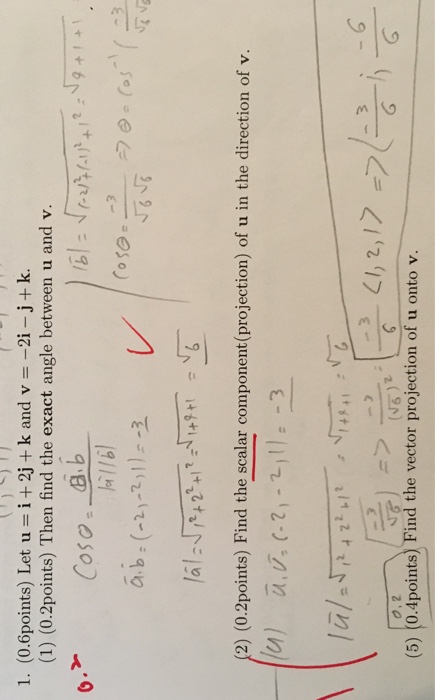 1. (0.6points) Let u = i + 2j + k and v = −2i − j + k.
(1) (0.2points) Then find the exact angle between u and v.
0.2
cosθ = a̅.b̅ / |a̅||b̅|
|b̅| = √(-2)²+(-1)²+1² = √9+1+1
a̅.b̅ = (-2,-2,1) = -3
cosθ = -3/√6√6 => θ = cos⁻¹(-3/√6√6
|a̅| = √1²+2²+1² = √1+4+1 = √6
(2) (0.2points) Find the scalar component(projection) of u in the direction of v.
|u| u̅.v̅ = (-2,-2,1) = -3
|u̅| = √1²+2²+1² = √1+4+1 = √6
(-3/√6) => -3/(√6)² = -3/6 <1,2,1> => (-3/6 i, -6/6
0.2
(5) (0.4points) Find the vector projection of u onto v.